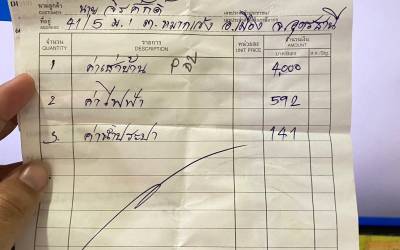 นามลูกค้า
CUSTOMER นาย จิรศักดิ์
ที่อยู่ 41/5 ม.1 ต.หมากแข้ง อ.เมือง จ.อุดรธานี
จำนวน รายการ หน่วยละ จำนวนเงิน
QUANTITY DESCRIPTION UNIT PRICE AMOUNT
1 ค่าเช่าบ้าน 4,000
2 ค่าไฟฟ้า 592
3. ค่าน้ำประปา 141